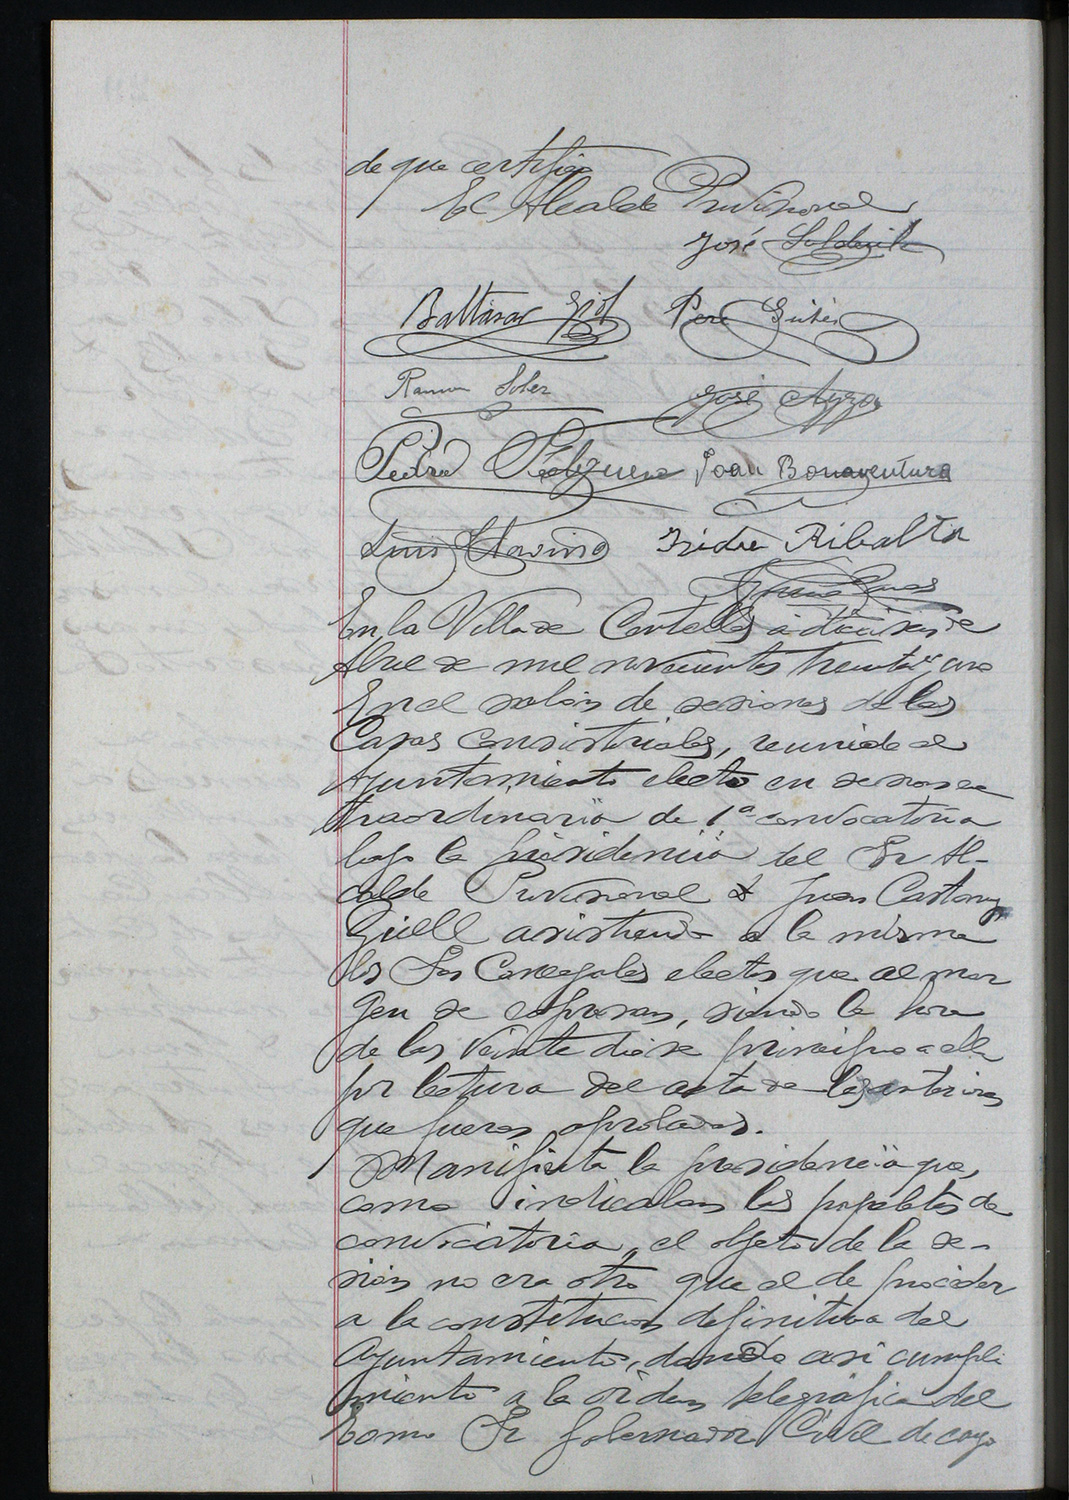 de que certifico
El Alcalde Provisional
José
Baltasar Pere
Ramon Soler José
Pedro Joan Bonaventura
Luis Isidre Ribalta
En la Villa de Centellas a dieciseis de
Abril de mil novecientos treinta y uno
En el salon de sesiones de las
Casas Consistoriales, reunido el
Ayuntamiento electo en sesion ex
traordinaria de 1ª convocatoria
bajo la presidencia del Sr Al-
calde Provisional Juan Castany
Güell asistiendo a la misma
los Srs Concejales electos que al mar
gen se espresan, siendo la hora
de las veinte dióse principio a ella
por lectura del acta de las anteriores
que fueron aprobadas.
Manifiesta la presidencia que,
como indicaban las papeletas de
convocatoria, el objeto de la se-
sion no era otro que el de proceder
a la constitucion definitiva del
Ayuntamiento, dando asi cumpli
miento a la orden telegrafica del
Excmo Sr Gobernador Civil de cuyo